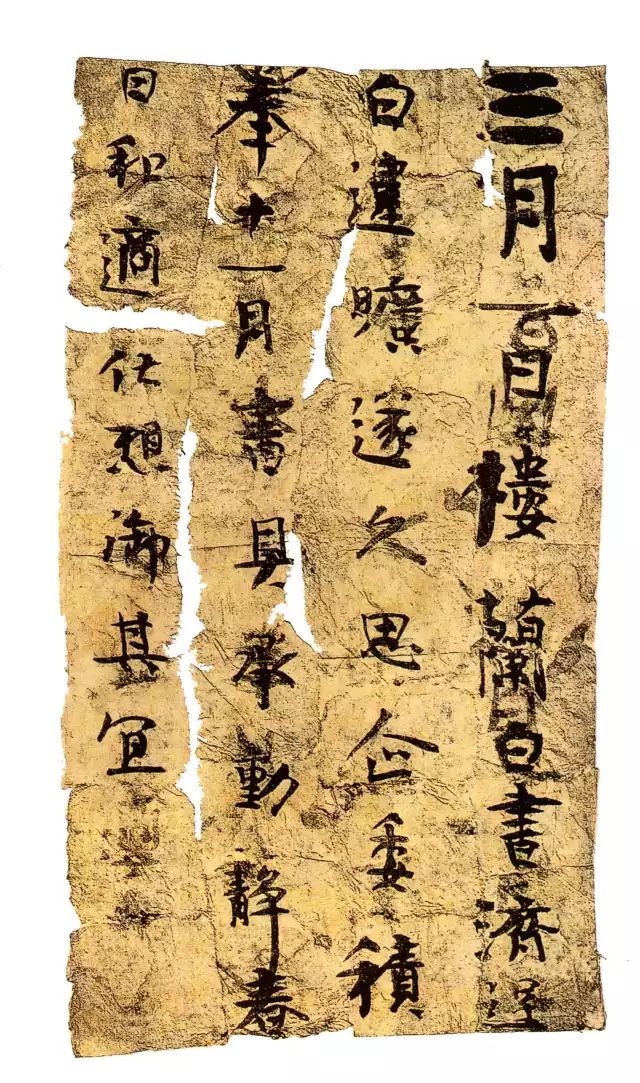 三月一日樓蘭白書濟逞
白違曠遂久思企委積
奉十一月書具承動静春
日和適伏想御其宜